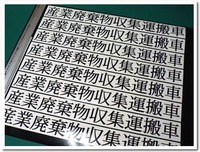 産業廃棄物収集運搬車
産業廃棄物収集運搬車
産業廃棄物収集運搬車
産業廃棄物収集運搬車
産業廃棄物収集運搬車
産業廃棄物収集運搬車
産業廃棄物収集運搬車
産業廃棄物収集運搬車